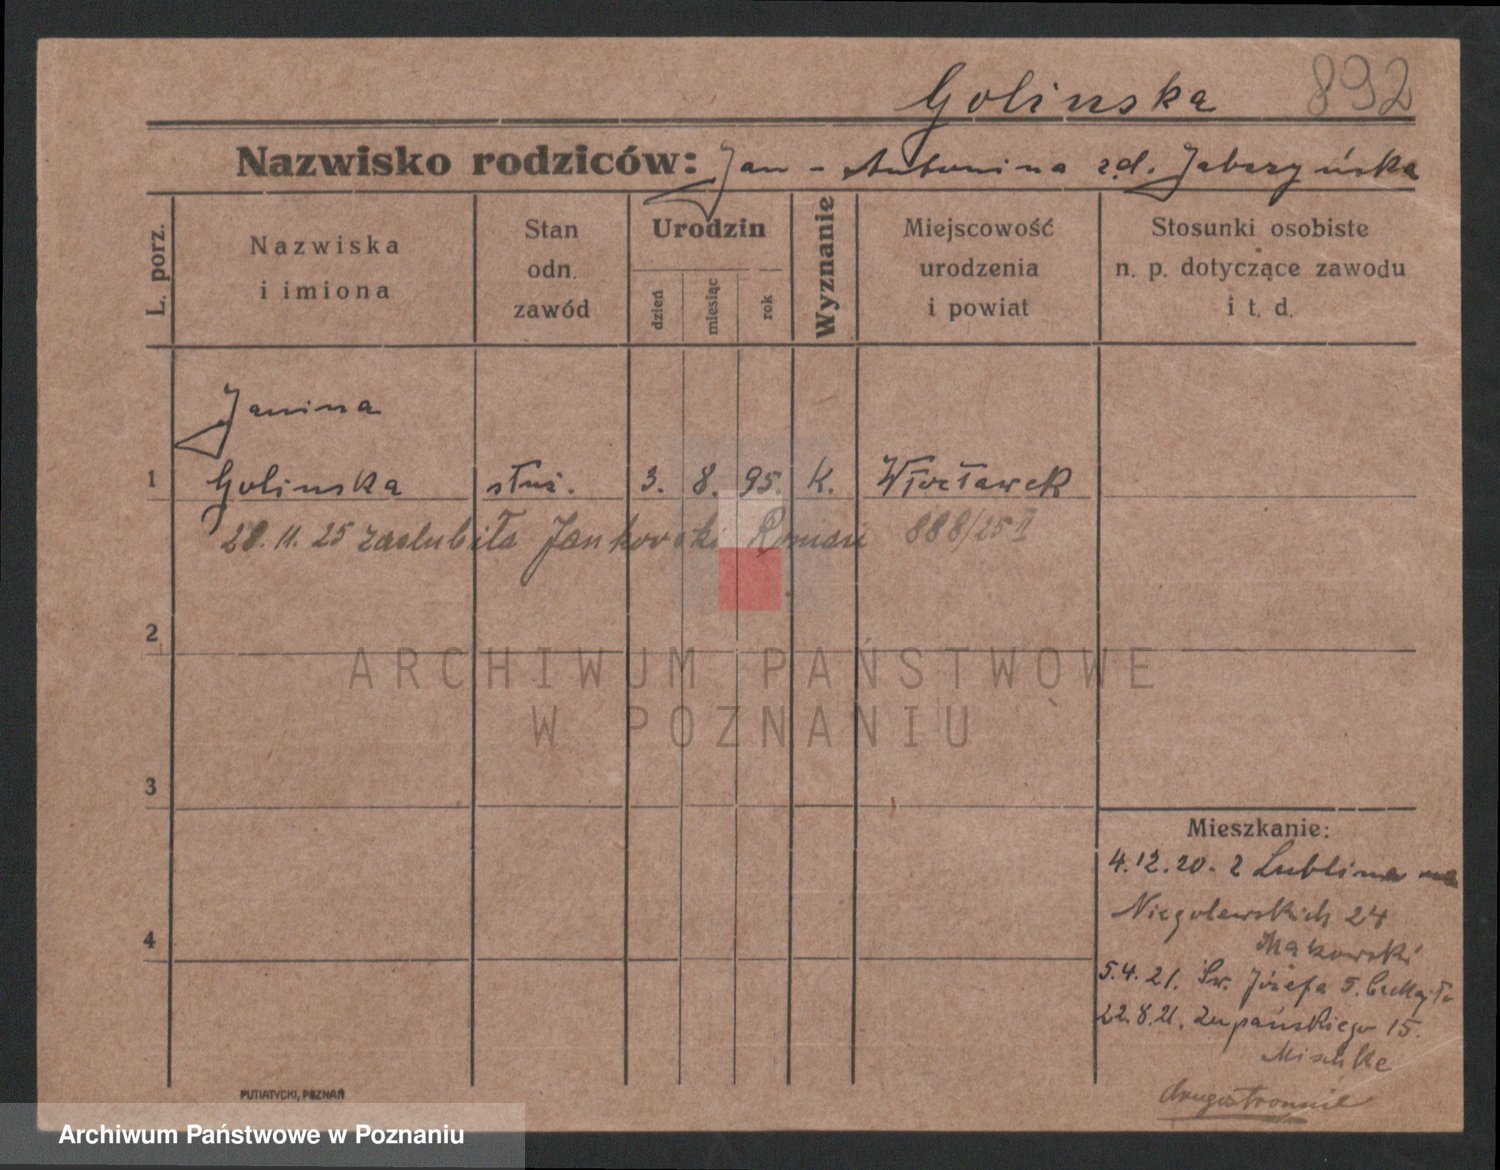 Golinska 892
Nazwisko rodziców: Jan - Antonina z.d. Jabczyńska
L. porz.
Nazwiska
i imiona
Stan
odn.
zawód
Urodzin
dzień
miesiąc
rok
Wyznanie
Miejscowość
urodzenia
i powiat
Stosunki osobiste
n. p. dotyczące zawodu
i t. d.
Janina
1 Golinska służ. 3. 8. 95. K. Włocławek
28. 11. 25 zaslubiła Jankowski Roman 888/25 II
2
ARCHIWUM PAŃSTWOWE
W POZNANIU
3
Mieszkanie:
4.12.20. z Lublina na
Niegolewskich 24
Makowski
4
5.4.21. Św. Józefa 5.
22.8.21. Zupańskiego 15.
Mischke
drugostronnie
PUTIATYCKI, POZNAŃ
Archiwum Państwowe w Poznaniu